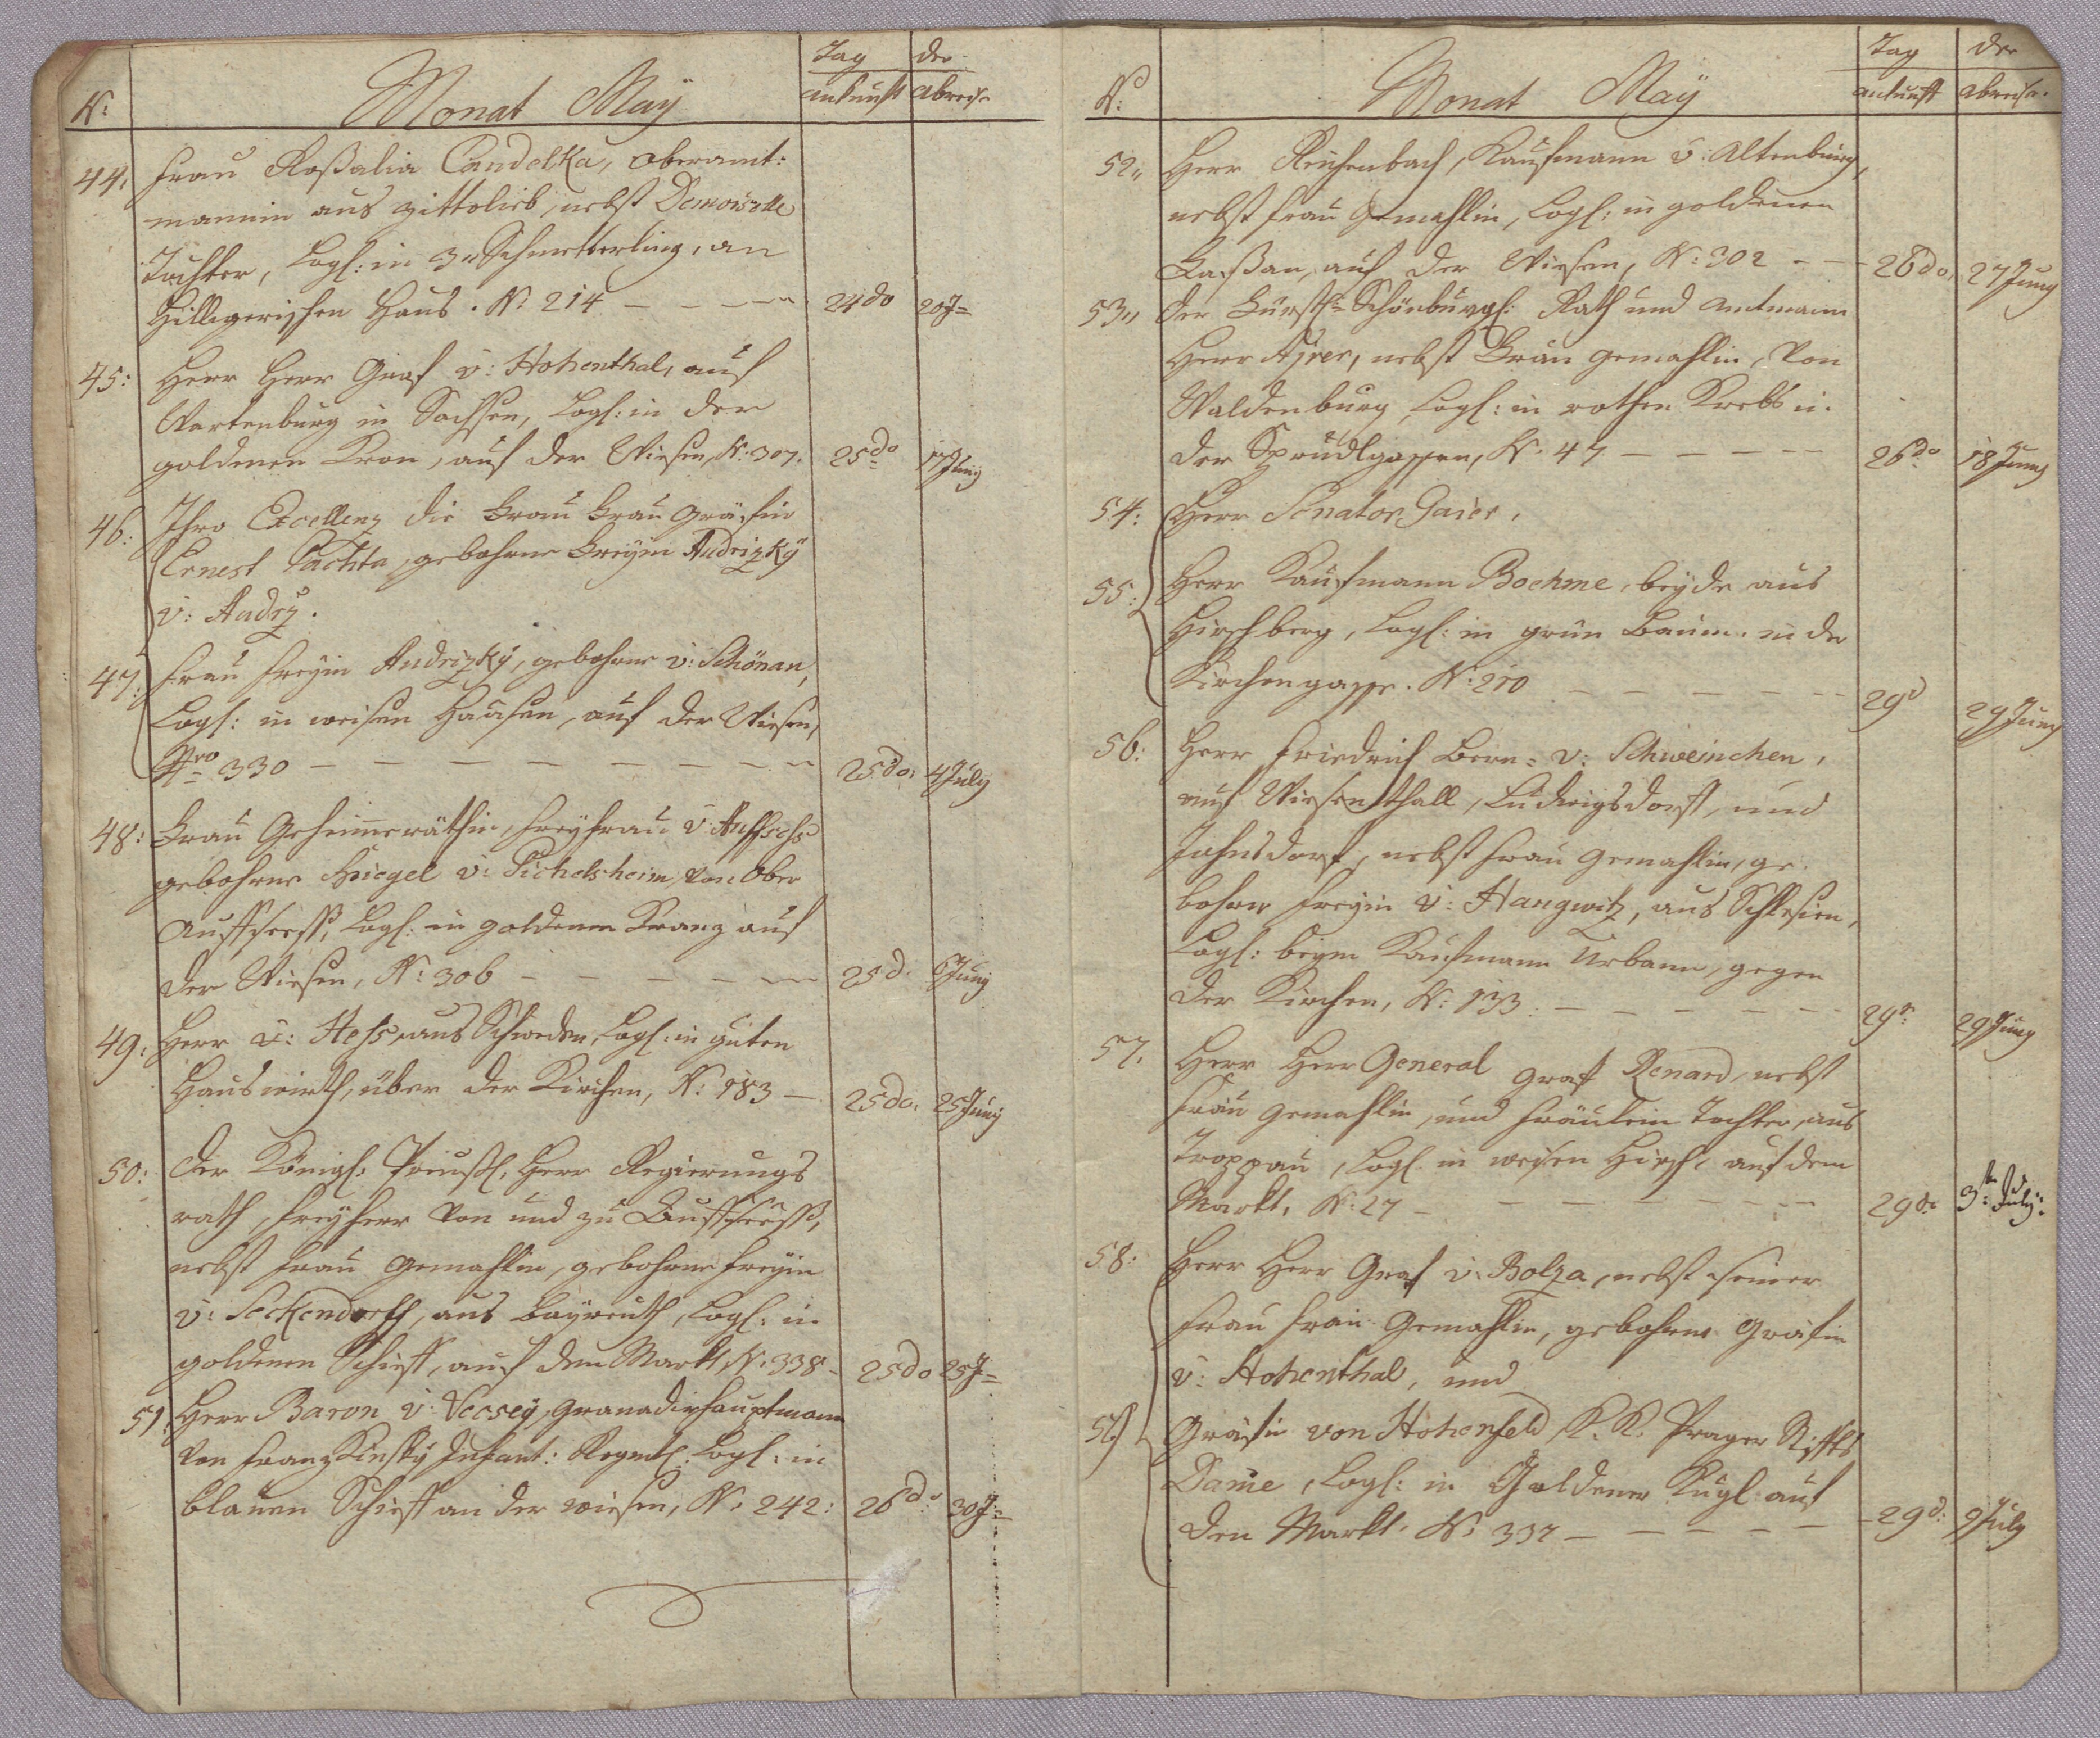 Tag der
N: Monat Maÿ ankunft abreise
44: Frau Roßalia Candelka, Oberamt:
mannin aus Zittolieb, nebst Demoiselle
Tochter, Logh: in 3 Schmetterling, an
Hilligerischen Haus. N: 214 – – – – 24 do 20 J=
45: Herr Herr Graf v: Hohenthal, auf
Wartenburg in Sachsen, Logh: in der
goldenen Kron, auf der Wiesen, N: 307. 25 do 17 Junÿ
46: Ihro Excellenz die Frau Frau Gräfin
Ernest Pachta, gebohrne Freyin Audrizkÿ
v: Audrz.
47: Frau Freyin Audrizkÿ, gebohrne v: Schönau,
Logh: in weisen Haasen, auf der Wiesen,
Nro 330 – – – – – – – – 25 do: 4 Julÿ
48: Frau Geheimräthin, Freyfrau v:
gebohrne Spiegel v: Pichelsheim, von Ober
Auffseess, Logh: in goldenen Kranz auf
der Wiesen, N: 306 – – – – – 25 d. 6 Junÿ
49: Herr v: Hess, aus Schweden, Logh: in guten
Hauswirth, über der Kirchen, N: 183 – 25 do: 25 Junÿ
50: Der Königh: Preußh. Herr Regierungs
rath, Freyherr von und zu Auffseess,
nebst Frau Gemahlin, gebohrne Freyin
v: Seckendorff, aus Bayreuth, Logh: in
goldenen Schieff, auf dem Markt, N: 338 – 25 do 25 J=
51: Herr Baron v: Vecseÿ, Granadirhauptmann
von Franz Kinsky Infant: Regmth: Logh: in
blauen Schieff an der Wiesen, N: 242: 26 d: 30 J:=
Tag der
N: Monat Maÿ ankunft abreise.
52" Herr Reichenbach, Kaufmann v: Altenburg,
nebst Frau Gemahlin, Logh: in goldenen
Faßan, auf der Wiesen, N: 302 – – 26 do. 27 Junÿ
53" Der Fürsth= Schönburgh: Rath und Amtmann
Herr Ajrer, nebst Frau Gemahlin, von
Waldenburg, Logh: in rothen Krebs in
der Sprudlgassen, N: 47 – – – – – 26 do 18 Junÿ
54: Herr Senator Gaier,
55: Herr Kaufmann Boehme, beyde aus
Hirschberg, Logh: in grün Baum in der
Kirchengasse. N: 210 – – – – – – 29 d 29 Junÿ
56: Herr Friedrich Bern= v: Schweinchen,
auf Wiesenthall, Ludwigsdorff, und
Johnsdorf, nebst Frau Gemahlin, ge
bohrne Freyin v: Haugwitz, aus Schlesien,
Logh: beym Kaufmann Urbann, gegen
der Kirchen, N: 133: – – – – – – 29 29 Junÿ
57. Herr Herr General Graf Renard, nebst
Frau Gemahlin, und Fräulein Tochter, aus
Troppau, Logh in weisen Hirsch, auf dem
Markt, N: 27 – – – – – – – 29 d: 3: Julÿ:
58: Herr Herr Graf v: Bolza, nebst seiner
Frau Frau Gemahlin, gebohrne Gräfin
v: Hohenthal, und
Gräfin von Hohenfeld K. K. Prager Stifts
Dame, Logh: in Goldenen Kugl auf
den Markt. N: 337 – – – – – – 29 d: 9 Julÿ